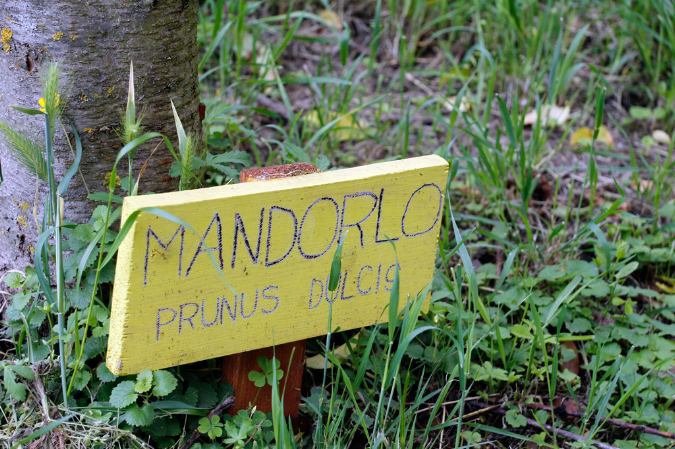 MANDORLO
PRUNUS DULCIS